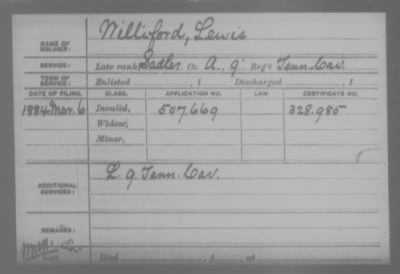 NAME OF SOLDIER: Williford, Lewis
SERVICE: Late rank, Sadler Co. A, 9" Reg't Tenn. Cav.
TERM OF SERVICE: Enlisted , 1 Discharged , 1
DATE OF FILING. CLASS. APPLICATION NO. LAW. CERTIFICATE NO.
1884 Mar. 6 Invalid, 507,669 328,985
Widow,
Minor,
ADDITIONAL SERVICES: L. 9 Tenn. Cav.
REMARKS:
Died , 1 at